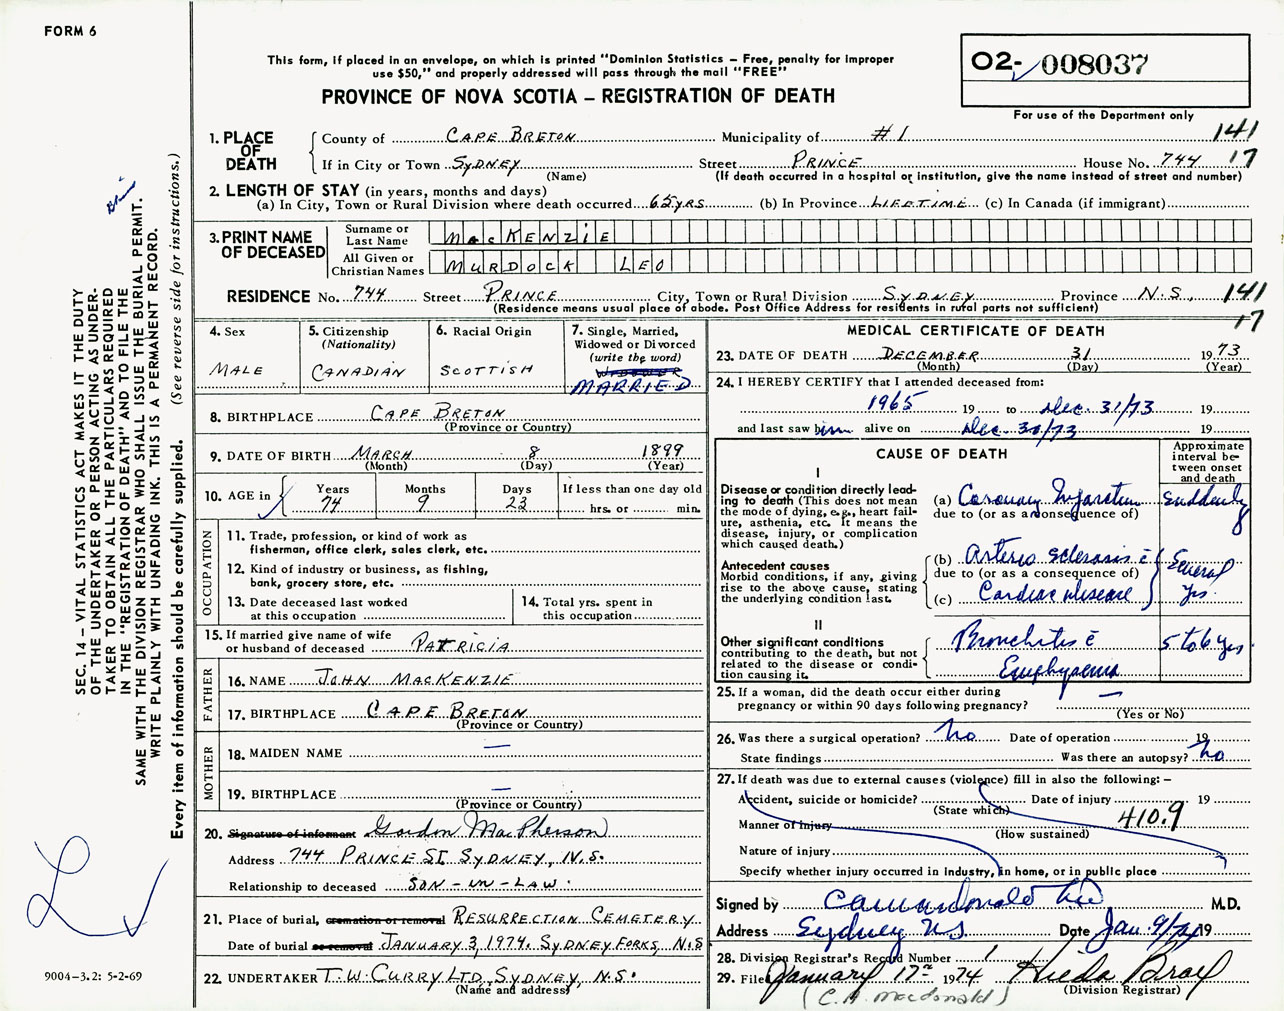 FORM 6
This form, if placed in an envelope, on which is printed "Dominion Statistics – Free, penalty for improper
use $50," and properly addressed will pass through the mail "FREE"
PROVINCE OF NOVA SCOTIA – REGISTRATION OF DEATH
02- 008037
For use of the Department only
1. PLACE OF DEATH
County of CAPE BRETON Municipality of #1 141
If in City or Town SYDNEY Street PRINCE House No. 744 17
(Name) (If death occurred in a hospital or institution, give the name instead of street and number)
2. LENGTH OF STAY (in years, months and days)
(a) In City, Town or Rural Division where death occurred 65 YRS (b) In Province LIFETIME (c) In Canada (if immigrant)
3. PRINT NAME OF DECEASED
Surname or Last Name MacKENZIE
All Given or Christian Names MURDOCK LEO
RESIDENCE No. 744 Street PRINCE City, Town or Rural Division SYDNEY Province N.S. 141
(Residence means usual place of abode. Post Office Address for residents in rural parts not sufficient) 17
4. Sex
MALE
5. Citizenship
(Nationality)
CANADIAN
6. Racial Origin
SCOTTISH
7. Single, Married,
Widowed or Divorced
(write the word)
WIDOWER
MARRIED
8. BIRTHPLACE CAPE BRETON
(Province or Country)
9. DATE OF BIRTH MARCH 8 1899
(Month) (Day) (Year)
10. AGE in Years Months Days If less than one day old
74 9 23 hrs. or min.
OCCUPATION
11. Trade, profession, or kind of work as
fisherman, office clerk, sales clerk, etc.
12. Kind of industry or business, as fishing,
bank, grocery store, etc.
13. Date deceased last worked
at this occupation
14. Total yrs. spent in
this occupation
15. If married give name of wife
or husband of deceased PATRICIA
FATHER
16. NAME JOHN MACKENZIE
17. BIRTHPLACE CAPE BRETON
(Province or Country)
MOTHER
18. MAIDEN NAME —
19. BIRTHPLACE —
(Province or Country)
20. Signature of informant Gordon MacPherson
Address 744 PRINCE ST. SYDNEY, N.S.
Relationship to deceased SON-IN-LAW
21. Place of burial, cremation or removal RESURRECTION CEMETERY
Date of burial or removal JANUARY 3, 1974. SYDNEY FORKS, N.S
22. UNDERTAKER T.W. CURRY LTD, SYDNEY, N.S.
(Name and address)
MEDICAL CERTIFICATE OF DEATH
17
23. DATE OF DEATH DECEMBER 31 1973
(Month) (Day) (Year)
24. I HEREBY CERTIFY that I attended deceased from:
1965 19 to Dec. 31/73 19
and last saw him alive on Dec. 30/73 19
CAUSE OF DEATH
Approximate
interval be-
tween onset
and death
I
Disease or condition directly lead-
ing to death (This does not mean
the mode of dying, e.g., heart fail-
ure, asthenia, etc. It means the
disease, injury, or complication
which caused death.)
(a) Coronary Infarction Suddenly
due to (or as a consequence of)
Antecedent causes
Morbid conditions, if any, giving
rise to the above cause, stating
the underlying condition last.
(b) Arterio sclerosis c̄ Several
due to (or as a consequence of)
(c) Cardiac disease yrs.
II
Other significant conditions
contributing to the death, but not
related to the disease or condi-
tion causing it.
Bronchitis c̄ 5 to 6 yrs.
Emphysema
25. If a woman, did the death occur either during
pregnancy or within 90 days following pregnancy? —
(Yes or No)
26. Was there a surgical operation? no Date of operation 19
State findings Was there an autopsy? no
27. If death was due to external causes (violence) fill in also the following: –
Accident, suicide or homicide? Date of injury 19
(State which)
Manner of injury 410.9
(How sustained)
Nature of injury
Specify whether injury occurred in industry, in home, or in public place
Signed by M.D.
Address Sydney NS Date Jan. 9/74 19
28. Division Registrar's Record Number 1
29. Filed January 17th 1974 Hilda Bray
(Division Registrar)
(C. A. MacDonald)
SEC. 14 – VITAL STATISTICS ACT MAKES IT THE DUTY
OF THE UNDERTAKER OR PERSON ACTING AS UNDER-
TAKER TO OBTAIN ALL THE PARTICULARS REQUIRED
IN THE "REGISTRATION OF DEATH" AND TO FILE THE
SAME WITH THE DIVISION REGISTRAR WHO SHALL ISSUE THE BURIAL PERMIT.
WRITE PLAINLY WITH UNFADING INK. THIS IS A PERMANENT RECORD.
Every item of information should be carefully supplied. (See reverse side for instructions.)
9004-3.2: 5-2-69